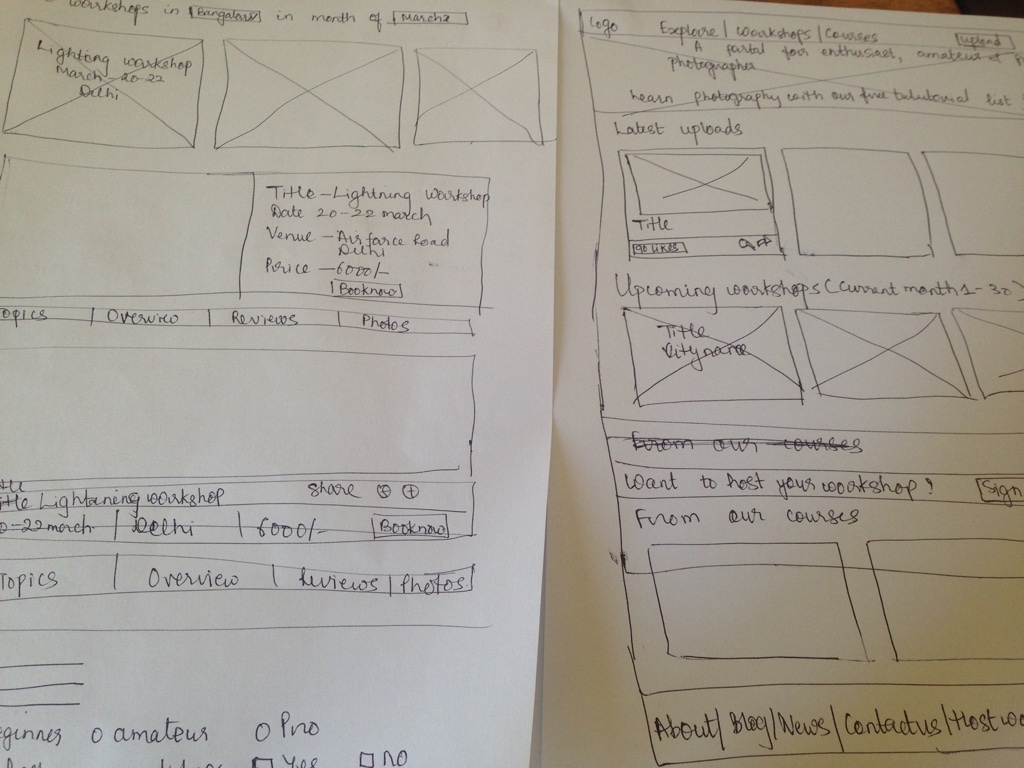 workshops in Bangalore in month of March
Lightong workshop
March - 20-22
Delhi
Title - Lightning workshop
Date 20-22 march
Venue - Airforce Road
Delhi
Price - 6000/-
Booknow
opics | Overview | Reviews | Photos
Title Lightening workshop
share
0-22 march | Delhi | 6000/- Booknow
Topics | Overview | Reviews | Photos
eginner o amateur o Pro
Yes NO
Logo Explore | workshops | Courses upload
A portal for enthusiast, amateur &
photographer
Learn photography with our free tutorial list
Latest uploads
Title
likes
Upcoming workshops (Current month 1-30)
Title
City name
From our courses
Want to host your workshop? Sign
From our courses
About | Blog | News | Contactus | Host wo